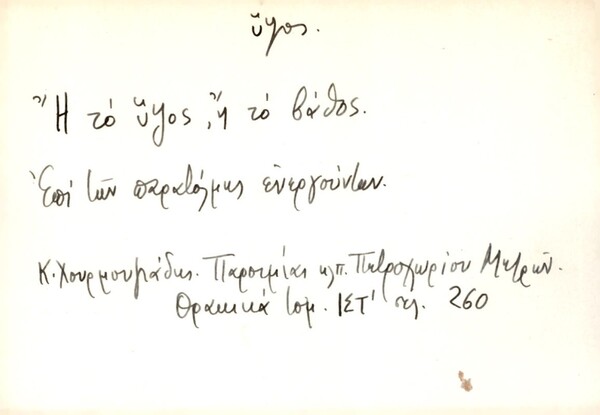 ὕψος.
Ἢ τό ὕψος, ἤ τό βάθος.
Ἐπί τῶν παρατόλμως ἐνεργούντων.
Κ. Χουρμουζιάδης. Παροιμίαι κλπ. Πετροχωρίου Μετρῶν.
Θρακικά τομ. ΙΣΤ' σελ. 260